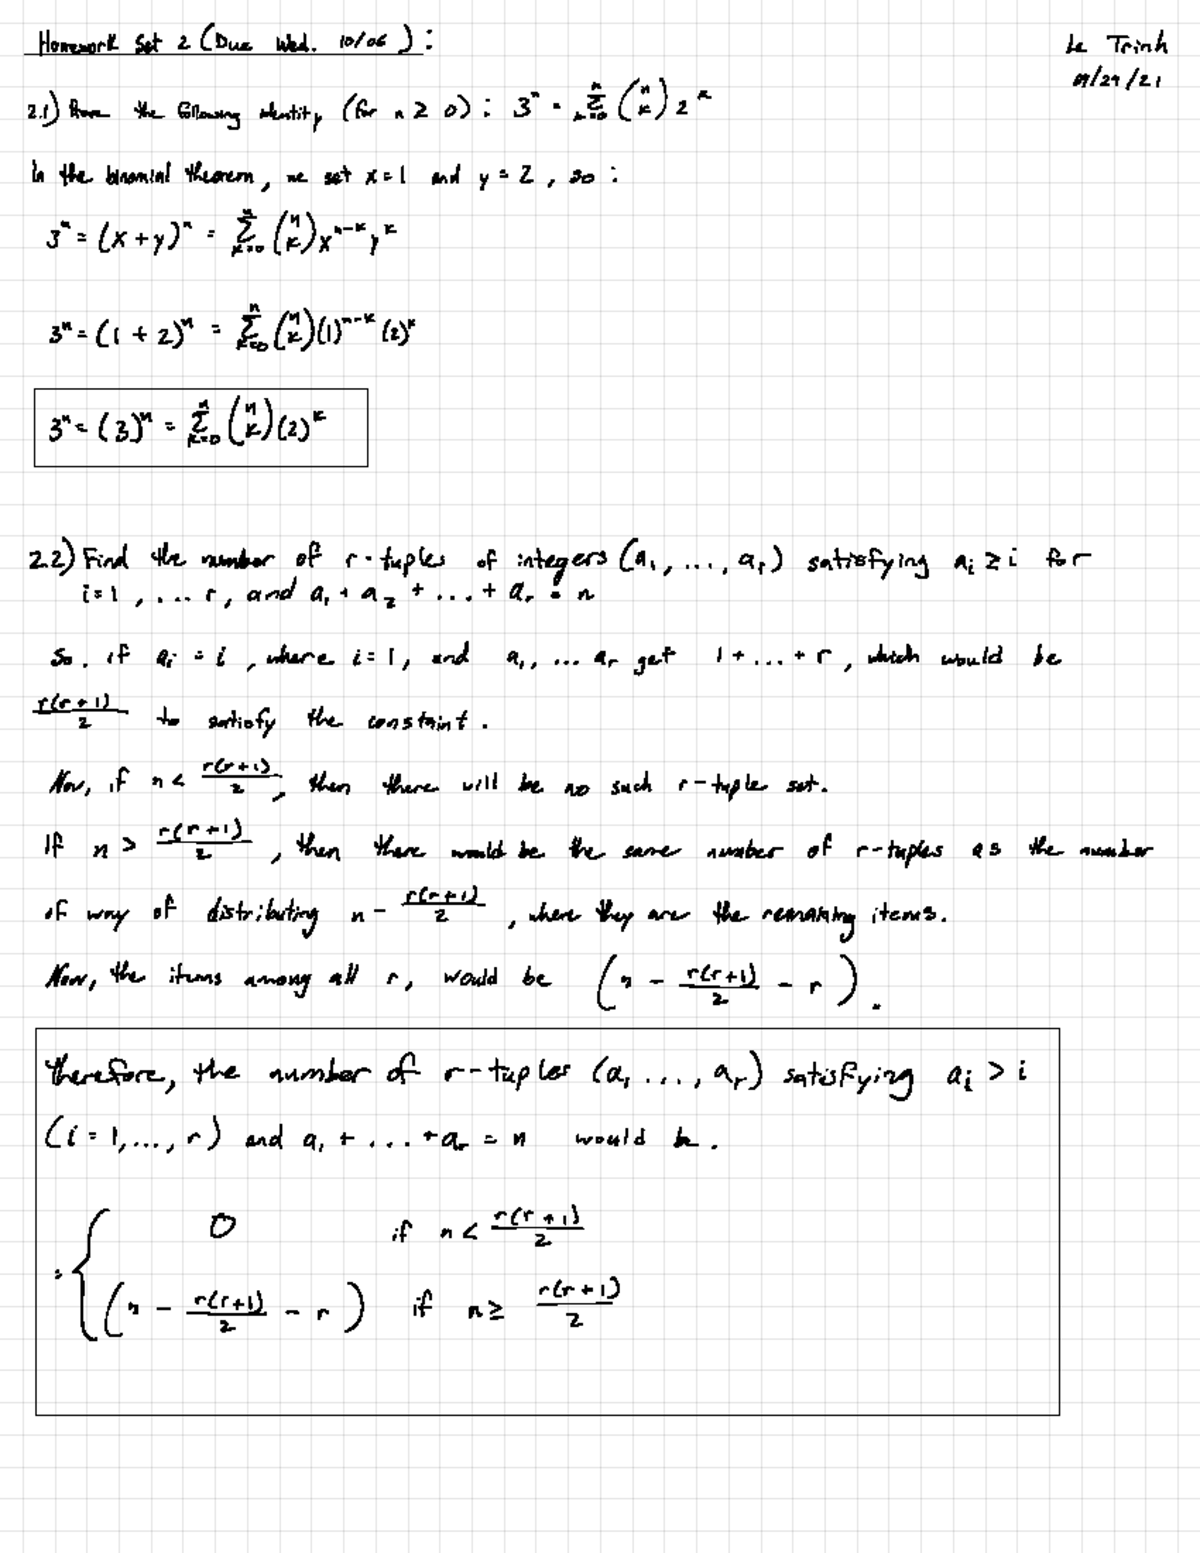 Homework Set 2 (Due Wed. 10/06):
Le Trinh
09/29/21
2.1) Prove the following identity (for n ≥ 0): 3^n = Σ_{k=0}^{n} (n k) 2^k
In the binomial theorem, we set x=1 and y=2, so:
3^n = (x+y)^n = Σ_{k=0}^{n} (n k) x^{n-k} y^k
3^n = (1+2)^n = Σ_{k=0}^{n} (n k) (1)^{n-k} (2)^k
3^n = (3)^n = Σ_{k=0}^{n} (n k) (2)^k
2.2) Find the number of r-tuples of integers (a_1, ..., a_r) satisfying a_i ≥ i for
i=1, ... r, and a_1 + a_2 + ... + a_r = n
So, if a_i = i, where i=1, and a_1, ... a_r get 1+...+r, which would be
r(r+1)/2 to satisfy the constaint.
Now, if n < r(r+1)/2, then there will be no such r-tuple set.
If n > r(r+1)/2, then there would be the same number of r-tuples as the number
of way of distributing n - r(r+1)/2, where they are the remaining items.
Now, the items among all r, would be (n - r(r+1)/2 - r).
therefore, the number of r-tuples (a_1 ..., a_r) satisfying a_i > i
(i=1,..., r) and a_1 + ... + a_r = n would be.
= { 0 if n < r(r+1)/2
(n - r(r+1)/2 - r) if n ≥ r(r+1)/2